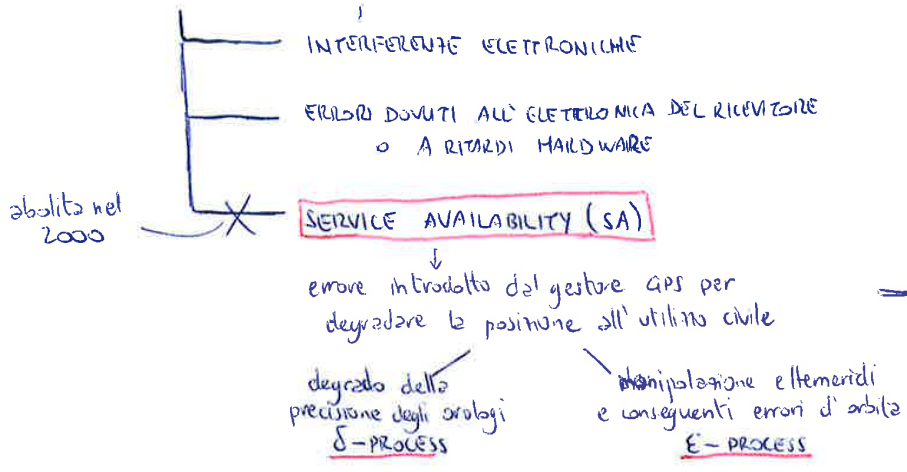 INTERFERENZE ELETTRONICHE
ERRORI DOVUTI ALL' ELETTRONICA DEL RICEVITORE
O A RITARDI HARDWARE
abolita nel
2000
SERVICE AVAILABILITY (SA)
errore introdotto dal gestore GPS per
degradare la posizione all' utilizzo civile
degrado della
precisione degli orologi
δ-PROCESS
manipolazione effemeridi
e conseguenti errori d' orbita
ε-PROCESS